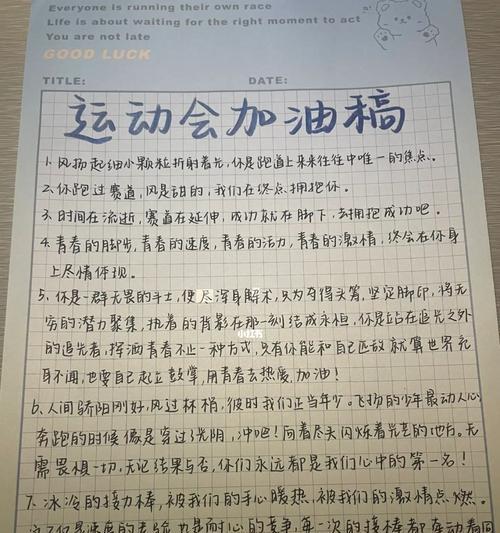 Everyone is running their own race
Life is about waiting for the right moment to act
You are not late
GOOD LUCK
TITLE: DATE:
运动会加油稿
1. 风扬起细小颗粒折射着光,你是跑道上来来往往中唯一的焦点。
2. 你跑过赛道,风是甜的,我们在终点拥抱你。
3. 时间在流逝,赛道在延伸,成功就在脚下,去拥抱成功吧。
4. 青春的脚步,青春的速度,青春的活力,青春的激情,终会在你身
上尽情体现。
5. 你是一群无畏的斗士,使尽浑身解术,只为夺得头筹,坚定脚印,将无
穷的潜力聚集,执着的背影在那一刻结成永恒,你是站在追光之外
的追光者,挥洒青春不止一种方式,只有你能和自己匹敌 就算世界充
耳不闻,也要自己起立鼓掌,用青春去热度,加油!
6. 人间骄阳刚好,风过林梢,彼时我们正当年少。飞扬的少年最动人心
奔跑的时候像是穿过光阴,冲吧!向着尽头闪烁着光芒的地方。无
需畏惧一切,无论结果与否,你们永远都是我们心中的第一名!
7. 冰冷的接力棒,被我们的手心暖热,被我们的激情点燃。
是速度的考验,也是耐心的竞争,每一次的接棒都牵动着同
小红书